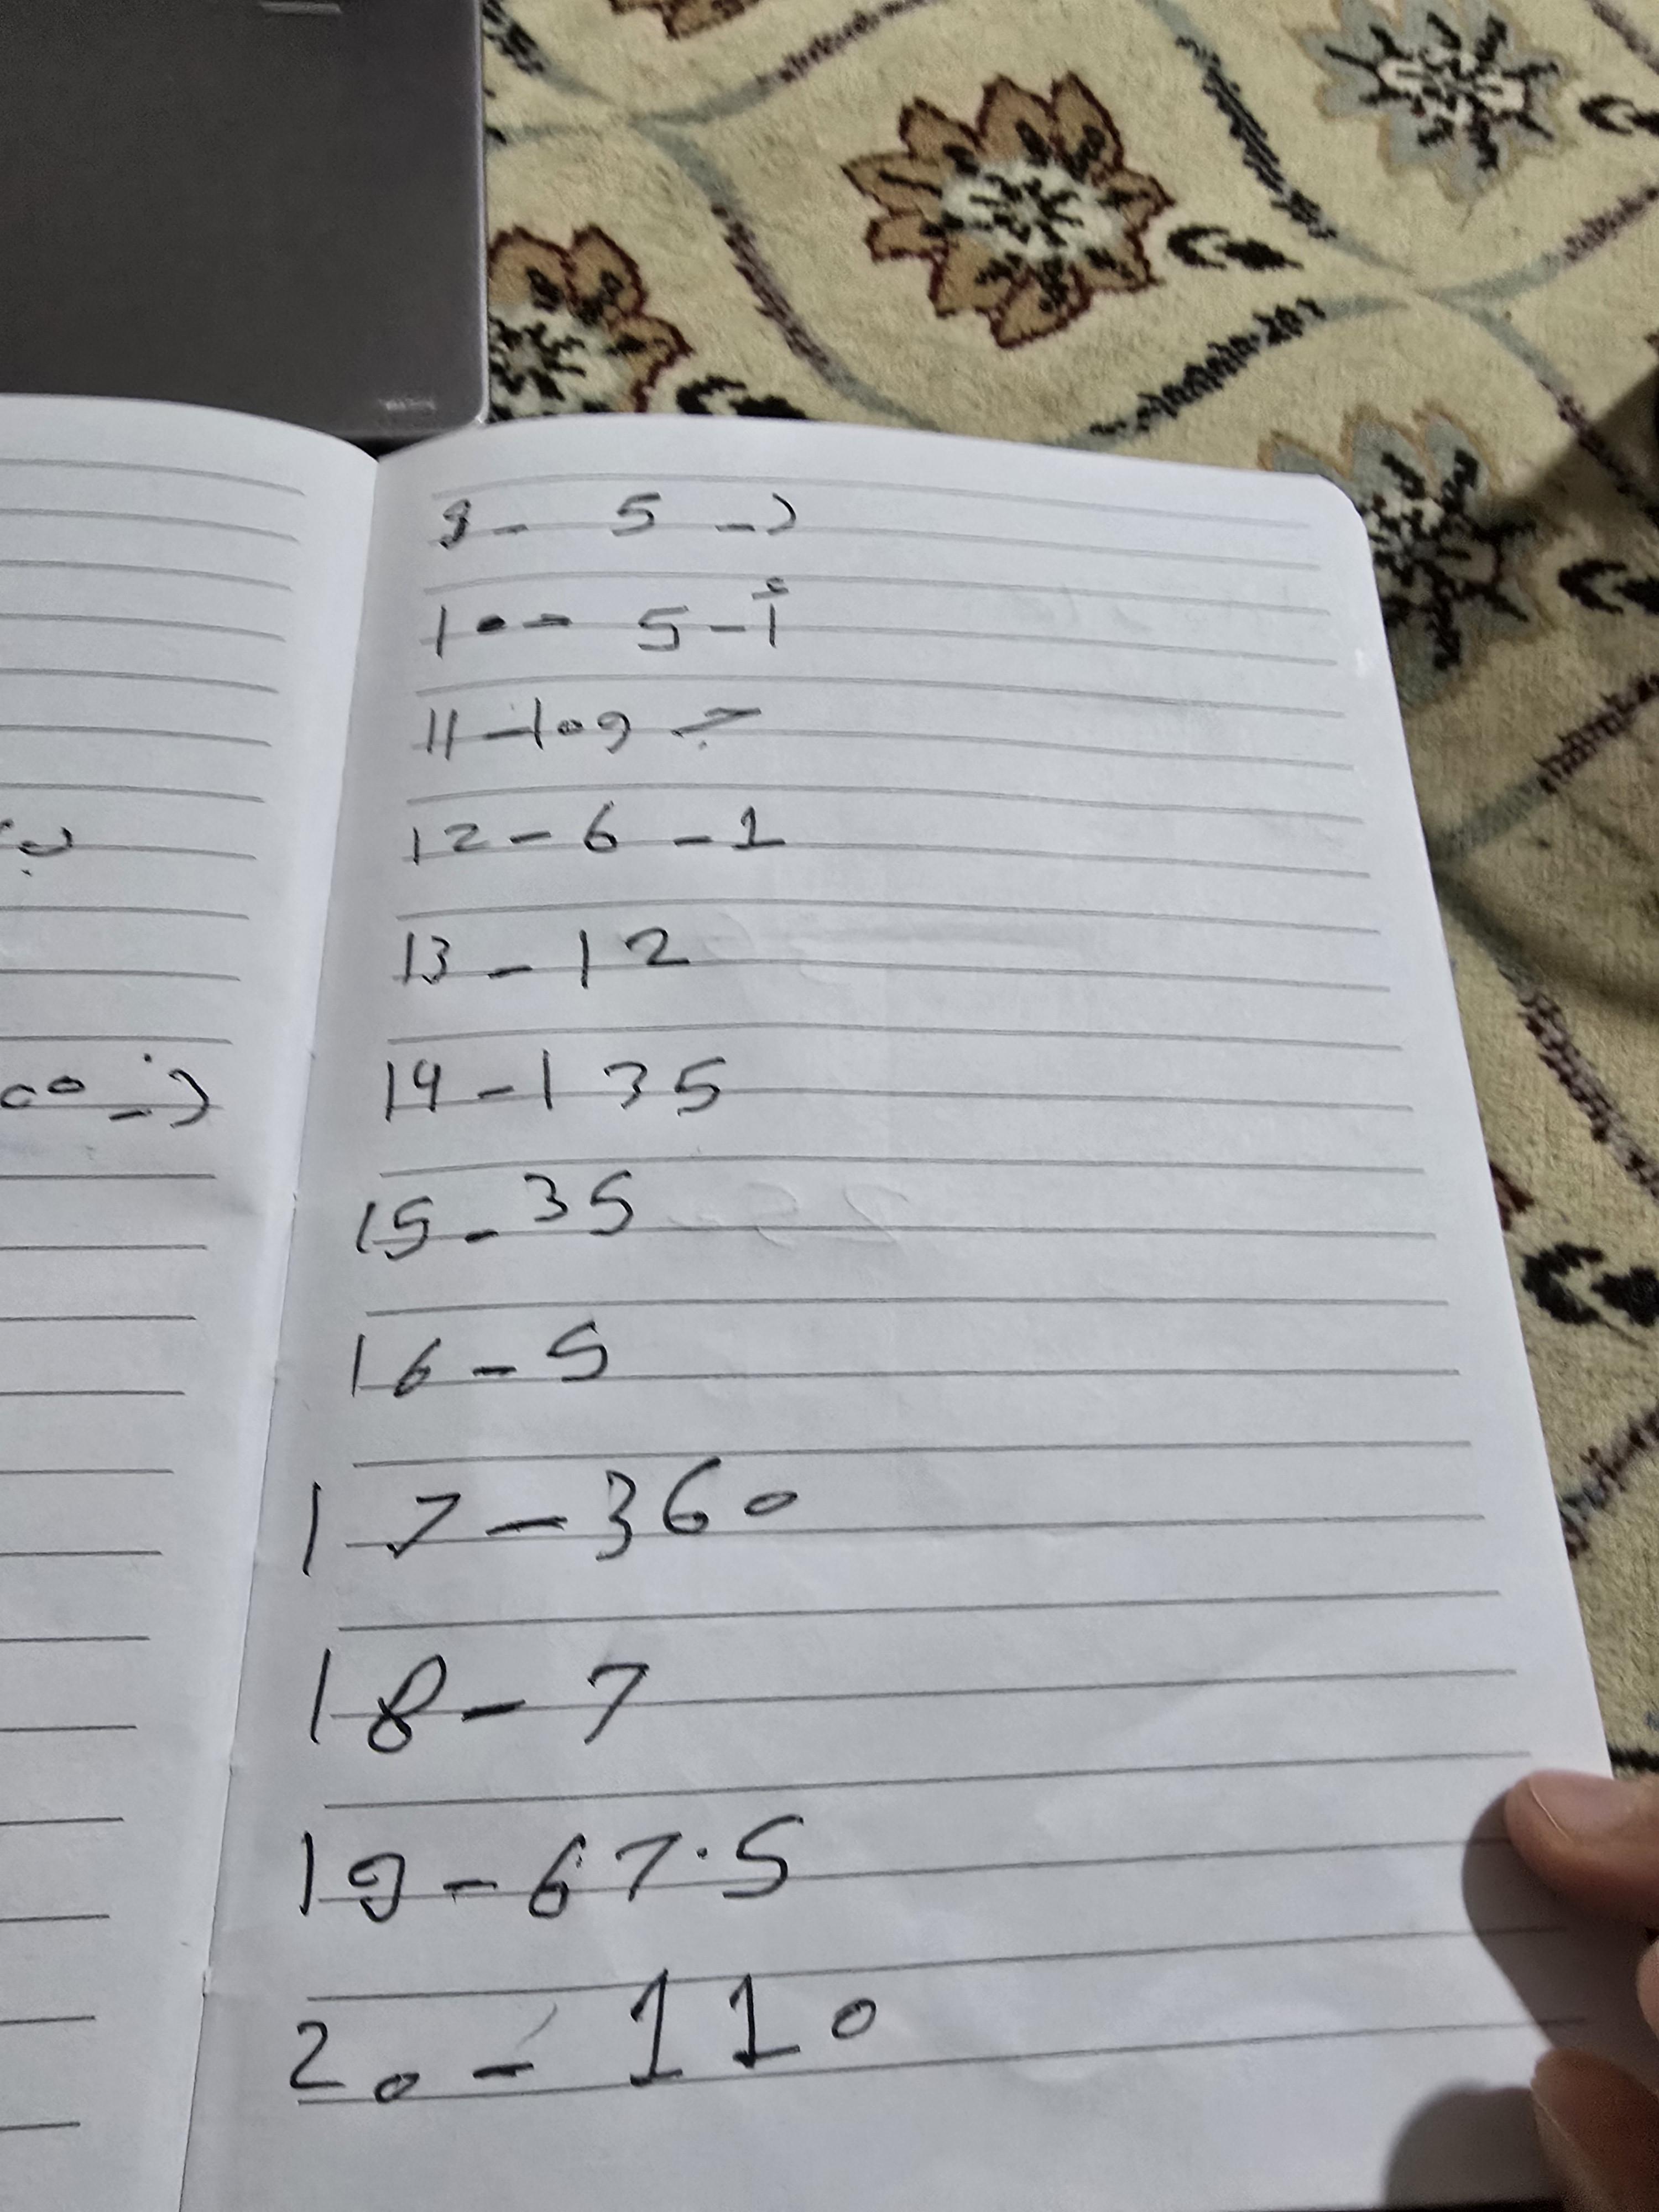 9- 5 - د
10- 5 - أ
11 - 109 ج
12 - 6 - 1
13 - 12
14 - 135
15 - 35
16 - 5
17 - 360
18 - 7
19 - 67.5
20 - 110